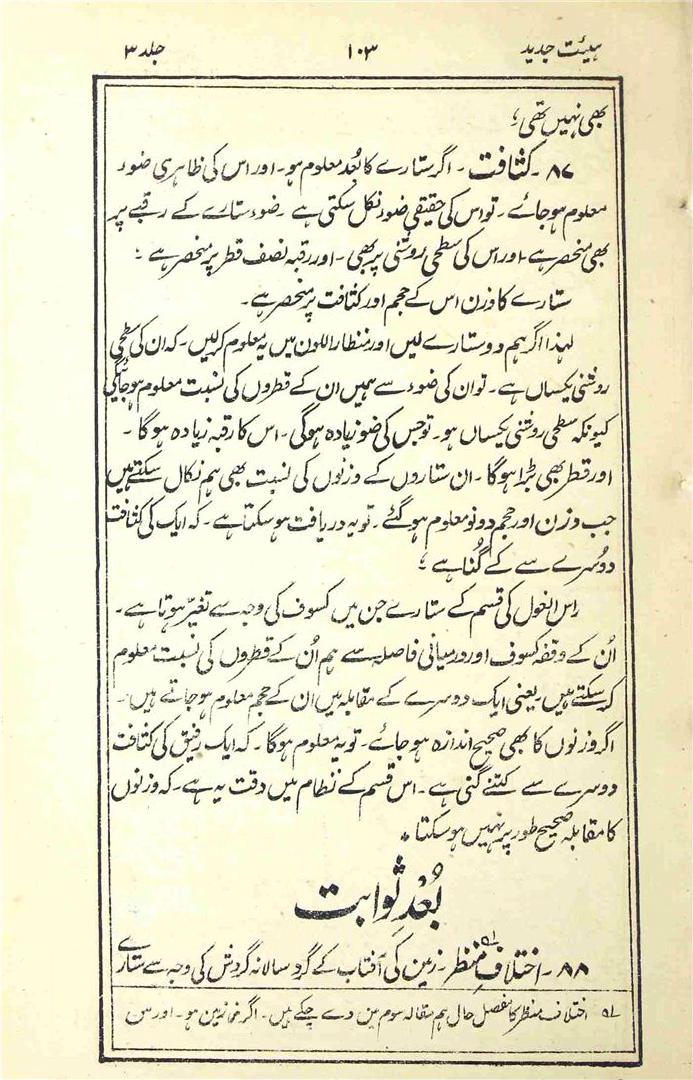 ہیئت جدید ۱۰۳ جلد ۳
بھی نہیں تھی؛
۸۷ ۔ کثافت ۔ اگر ستارے کا بُعد معلوم ہو ۔ اور اس کی ظاہری ضوء
معلوم ہو جائے ۔ تو اس کی حقیقی ضوء نکل سکتی ہے ۔ ضوء ستارے کے رقبے پر
بھی منحصر ہے ۔ اور اس کی سطحی روشنی پر بھی ۔ اور رقبہ نصف قطر پر منحصر ہے ؛
ستارے کا وزن اس کے حجم اور کثافت پر منحصر ہے ۔
لہذا اگر ہم دو ستارے لیں اور منظار اللون میں یہ معلوم کر لیں ۔ کہ ان کی سطحی
روشنی یکساں ہے ۔ تو ان کی ضوء سے ہمیں ان کے قطروں کی نسبت معلوم ہو جائیگی
کیونکہ سطحی روشنی یکساں ہو ۔ تو جس کی ضو زیادہ ہوگی ۔ اس کا رقبہ زیادہ ہو گا ۔
اور قطر بھی بڑا ہو گا ۔ ان ستاروں کے وزنوں کی نسبت بھی ہم نکال سکتے ہیں
جب وزن اور حجم دونو معلوم ہو گئے ۔ تو یہ دریافت ہو سکتا ہے ۔ کہ ایک کی کثافت
دوسرے سے کے گُنا ہے ؛
راس الغول کی قسم کے ستارے جن میں کسوف کی وجہ سے تغیّر ہوتا ہے ۔
اُن کے وقفہ کسوف اور درمیانی فاصلہ سے ہم اُن کے قطروں کی نسبت معلوم
کر سکتے ہیں ۔ یعنی ایک دوسرے کے مقابلہ میں ان کے حجم معلوم ہو جاتے ہیں ۔
اگر وزنوں کا بھی صحیح اندازہ ہو جائے ۔ تو یہ معلوم ہو گا ۔ کہ ایک رفیق کی کثافت
دوسرے سے کتنے گنی ہے ۔ اس قسم کے نظام میں دقت یہ ہے ۔ کہ وزنوں
کا مقابلہ صحیح طور پر نہیں ہو سکتا *
بُعدِ ثوابت
۸۸ ۔ اختلافِ منظر ۱؎ ۔ زمین کی آفتاب کے گرد سالانہ گردش کی وجہ سے ستارے
۱؎ اختلاف منظر کا مفصل حال ہم مقالہ سوم میں دے چکے ہیں ۔ اگر زمین ہو ۔ اور س